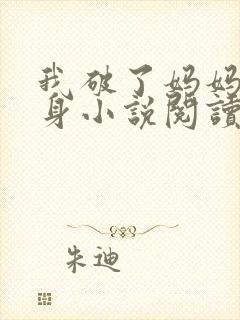 我破了妈妈
身小说閱讀
朱迪